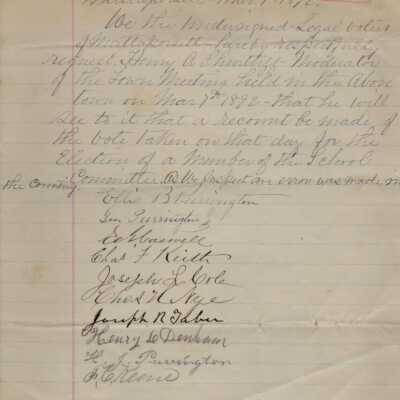 Mattapoisett Mar. 9 1892
We the undersigned Legal voters
of Mattapoisett hereby respectfully
request Henry A. Shurtleff Moderator
of the Town Meeting held in the Above
town on Mar 7th 1892 - that he will
see to it that a recount be made of
the vote taken on that day for the
Election of a Member of the School
Committee. As We suspect an error was made in
the counting
Ellis B Purrington
Geo Purrington Jr
Chas F Keith
Joseph L Cole
Chas H Nye
Joseph R Taber
Henry D Denham
H. J. Purrington